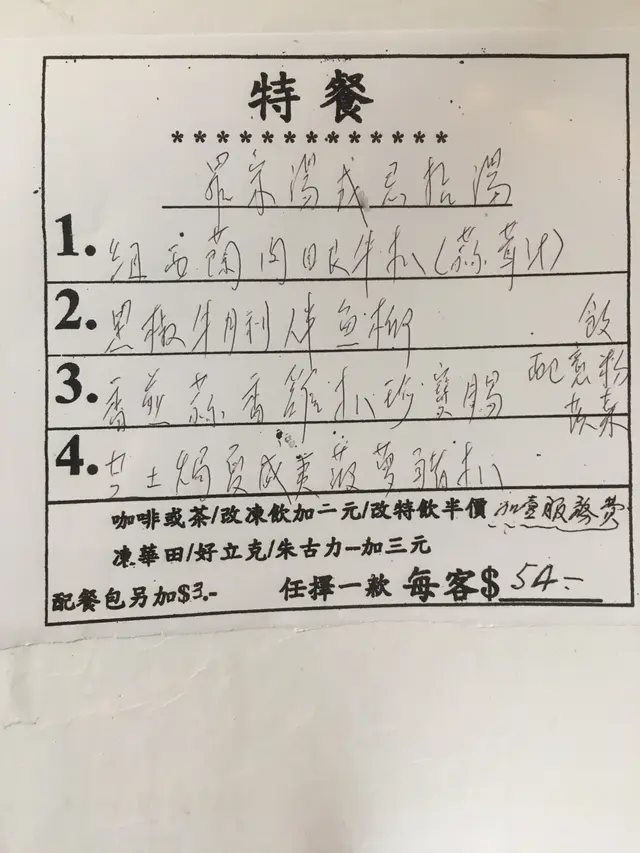 特餐
*************
羅宋湯或忌揸湯
1. 組西蘭肉眼牛扒(蒜茸汁)
2. 黑椒牛脷伴魚柳
飯
3. 香煎蒜香雞扒珍寶腸
配意粉
蔬菜
4. 芝士焗夏威夷菠蘿豬扒
咖啡或茶/改凍飲加二元/改特飲半價 加壹服務費
凍華田/好立克/朱古力--加三元
配餐包另加$3.- 任擇一款 每客$ 54.-